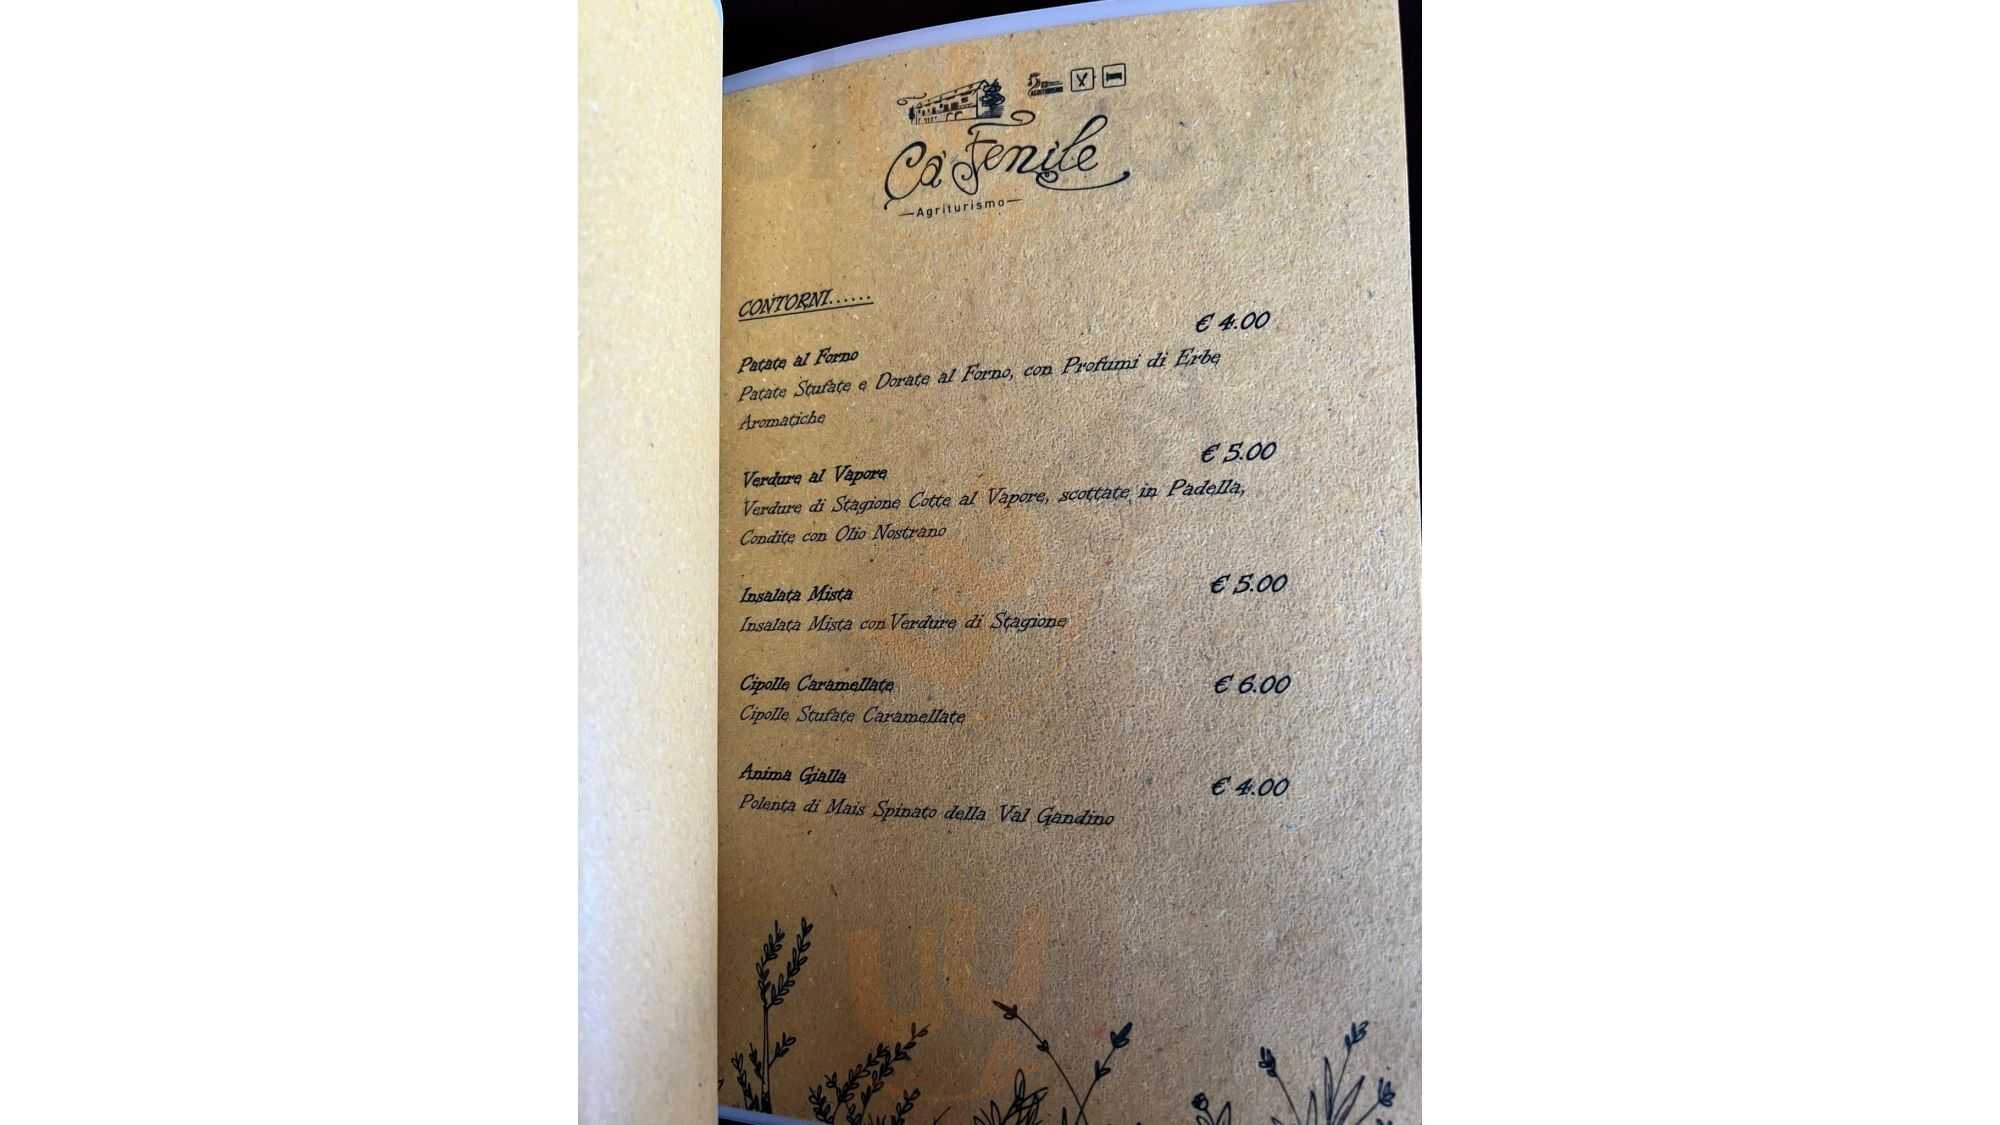 Ca' Fenile
Agriturismo
CONTORNI......
€ 4.00
Patate al Forno
Patate Stufate e Dorate al Forno, con Profumi di Erbe
Aromatiche
€ 5.00
Verdure al Vapore
Verdure di Stagione Cotte al Vapore, scottate in Padella,
Condite con Olio Nostrano
Insalata Mista € 5.00
Insalata Mista con Verdure di Stagione
Cipolle Caramellate € 6.00
Cipolle Stufate Caramellate
Anima Gialla € 4.00
Polenta di Mais Spinato della Val Gandino